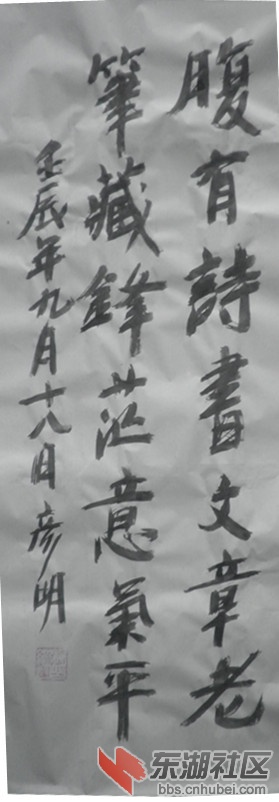 腹有詩書文章老
筆藏鋒芒意氣平
壬辰年九月十八日彦明
东湖社区
bbs.cnhubei.com